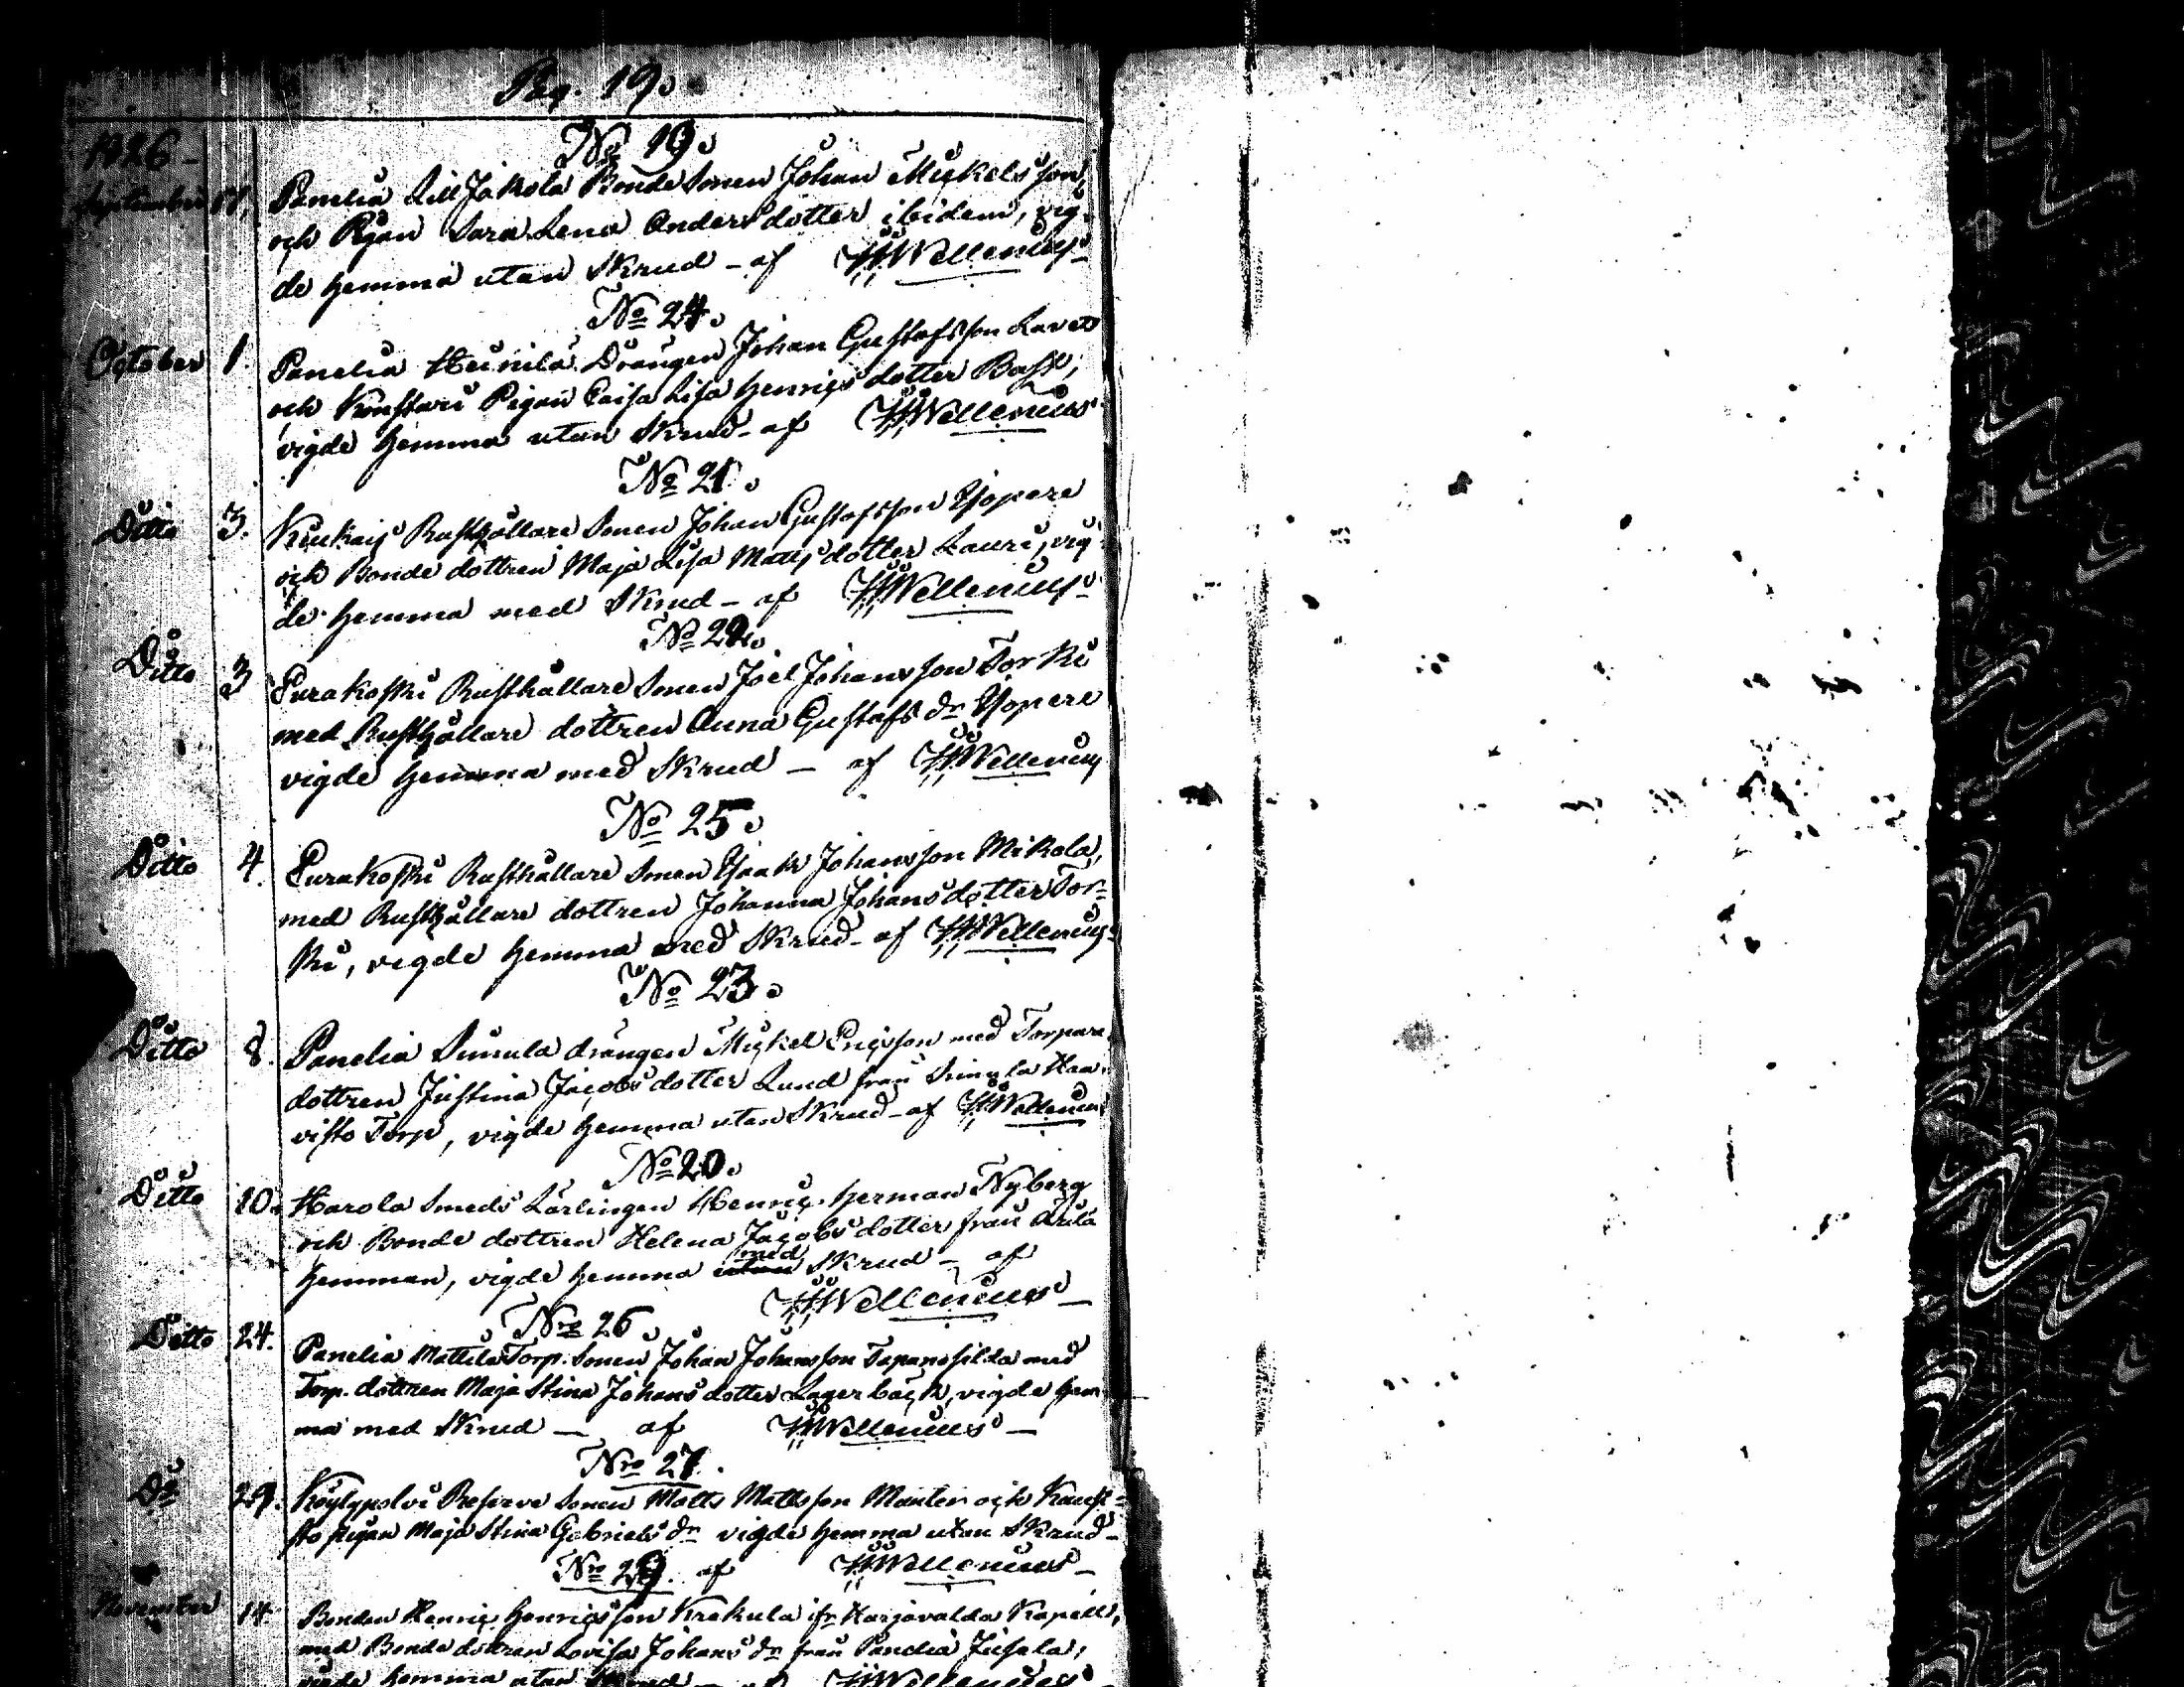 Pag. 19.
1826
No 19.
September 17. Panelia Lill Jakola Bonde Sonen Johan Mickelsson,
och Pigan Sara Lena Anders dotter ibidem, vig-
de hemma utan Skrud - af HWellenius
No 24.
October 1. Panelia Heinilä Drängen Johan Gustafsson Laven
och Konstari Pigan Caisa Lisa Henrics dotter Bast,
vigde hemma utan Skrud - af HWellenius
No 21.
Ditto 3. Kiukais Rusthållare Sonen Johan Gustafsson Yopere
och Bonde dottren Maja Lisa Matts dotter Lauri, vig-
de hemma med Skrud - af HWellenius
No 22.
Ditto 3 Eurakoski Rusthållare Sonen Joel Johansson Torkki
med Rusthållare dottren Anna Gustafs dr Yopere
vigde hemma med Skrud - af HWellenius
No 25.
Ditto 4. Eurakoski Rusthållare Sonen Isaak Johansson Mikola,
med Rusthållare dottren Johanna Johans dotter Tor-
ki, vigde hemma med Skrud - af HWellenius
No 23.
Ditto 8. Panelia Simula drängen Mickel Ericsson med Torpare
dottren Justina Jacobs dotter Lund från Simula Haa-
visto Torp, vigde hemma utan Skrud - af HWellenius
No 20.
Ditto 10. Harola Smeds Lärlingen Henric Herman Nyberg
och Bonde dottren Helena Jacobs dotter från Anila
med
Hemman, vigde hemma utan Skrud - af
HWellenius
Nro 26
Ditto 24. Panelia Mattila Torp. Sonen Johan Johansson Tapanisilda med
Torp. dottren Maja Stina Johans dotter Lagerbäck, vigde hem
ma med Skrud - af HWellenius
Nro 27.
Do 29. Köylypolvi Reserve Sonen Matts Mattsson Manten och
pigan Maja Stina Gabriels dr vigde hemma utan Skrud -
Nro 29. af HWellenius
November 14 Bonden Henric Henricsson Krekula ifr Harjavalda Kapell,
med Bonde dottren Lovisa Johans dr från Panelia Jusala,
vigde hemma utan Skrud - af HWellenius